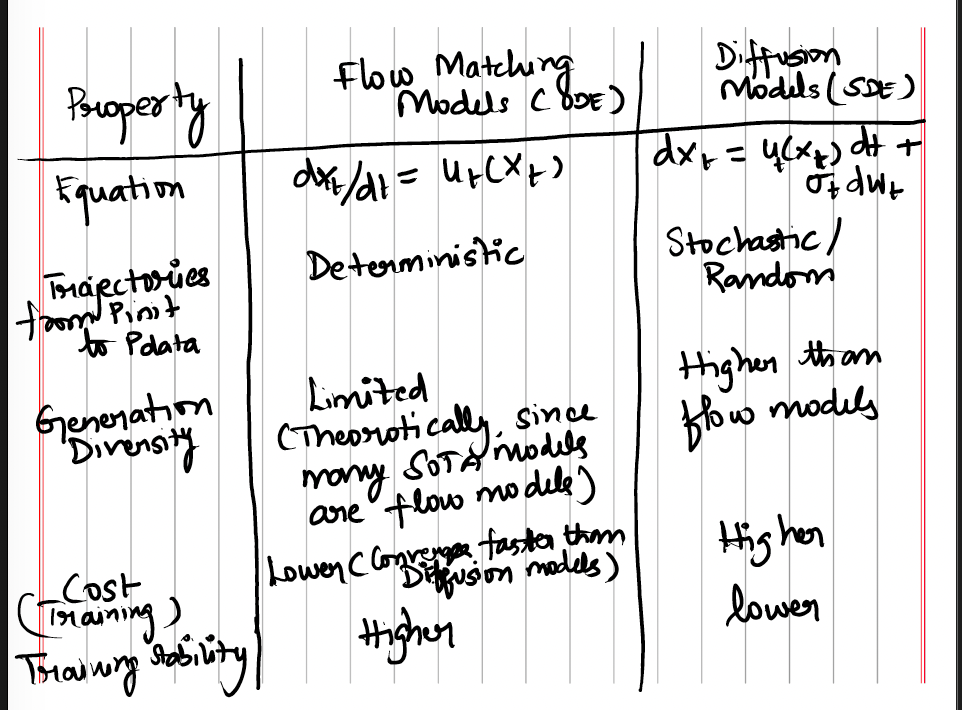 Property
Flow Matching
Models (ODE)
Diffusion
Models (SDE)
Equation
dxₜ/dt = uₜ(Xₜ)
dxₜ = uₜ(Xₜ) dt +
σₜ dWₜ
Trajectories
from Pinit
to Pdata
Deterministic
Stochastic /
Random
Generation
Diversity
Limited
(Theorotically, since
many SOTA models
are flow models)
Higher than
flow models
Cost
(Training)
Lower (Converge faster than
Diffusion models)
Higher
Training Stability
Higher
lower